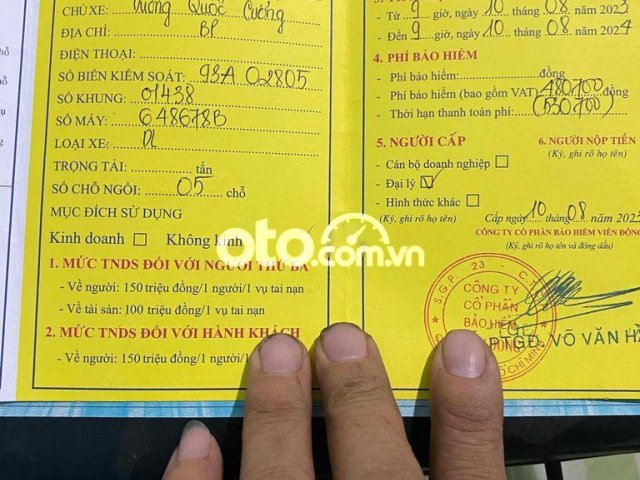 CHỦ XE: Vương Quốc Cường
ĐỊA CHỈ: BP
ĐIỆN THOẠI:
SỐ BIỂN KIỂM SOÁT: 93A 02805
SỐ KHUNG: 01438
SỐ MÁY: 648678B
LOẠI XE: DL
TRỌNG TẢI: tấn
SỐ CHỖ NGỒI: 05 chỗ
MỤC ĐÍCH SỬ DỤNG
Kinh doanh Không kinh
1. MỨC TNDS ĐỐI VỚI NGƯỜI THỨ BA
- Về người: 150 triệu đồng/1 người/1 vụ tai nạn
- Về tài sản: 100 triệu đồng/1 vụ tai nạn
2. MỨC TNDS ĐỐI VỚI HÀNH KHÁCH
- Về người: 150 triệu đồng/1 người/1
- Từ 9 giờ, ngày 10 tháng 08 năm 2023
- Đến 9 giờ, ngày 10 tháng 08 năm 2024
4. PHÍ BẢO HIỂM
- Phí bảo hiểm: đồng
- Phí bảo hiểm (bao gồm VAT) 480.700 đồng
- Thời hạn thanh toán phí: (530.700)
5. NGƯỜI CẤP
- Cán bộ doanh nghiệp
- Đại lý
- Hình thức khác
(Ký, ghi rõ họ tên)
6. NGƯỜI NỘP TIỀN
(Ký, ghi rõ họ tên)
Cấp ngày 10 tháng 08 năm 2023
CÔNG TY CỔ PHẦN BẢO HIỂM VIỄN ĐÔNG
(Ký, ghi rõ họ tên và đóng dấu)
CÔNG TY
CỔ PHẦN
BẢO HIỂM
PTGĐ. VÕ VĂN
oto.com.vn